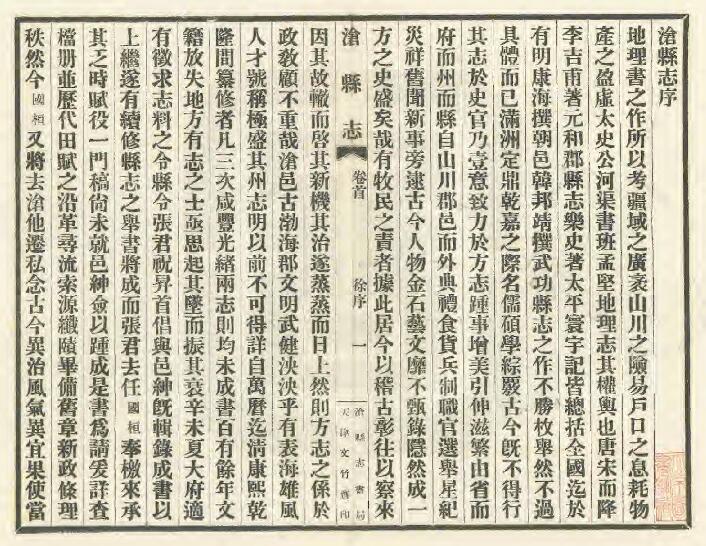 滄縣志序
地理書之作所以考疆域之廣袤山川之險易戶口之息耗物
產之盈虛太史公河渠書班孟堅地理志其權輿也唐宋而降
李吉甫著元和郡縣志樂史著太平寰宇記皆總括全國迄於
有明康海撰朝邑韓邦靖撰武功縣志之作不勝枚舉然不過
具體而已滿洲定鼎乾嘉之際名儒碩學綜覈古今旣不得行
其志於史官乃壹意致力於方志踵事增美引伸滋繁由省而
府而州而縣自山川郡邑而外典禮食貨兵制職官選舉星紀
災祥舊聞新事旁逮古今人物金石藝文靡不甄錄隱然成一
方之史盛矣哉有牧民之責者據此居今以稽古彰往以察來
滄縣志
卷首
徐序
一
滄縣志書局
天津文竹齋印
因其故轍而啓其新機其治遂蒸蒸而日上然則方志之係於
政敎顧不重哉滄邑古渤海郡文明武健泱泱乎有表海雄風
人才號稱極盛其州志明以前不可得詳自萬曆迄清康熙乾
隆間纂修者凡三次咸豐光緒兩志則均未成書百有餘年文
籍放失地方有志之士亟思起其墜而振其衰辛未夏大府適
有徵求志料之令縣令張君祝昇首倡與邑紳旣輯錄成書以
上繼遂有續修縣志之舉書將成而張君去任國桓奉檄來承
其乏時賦役一門稿尙未就邑紳僉以踵成是書爲請爰詳查
檔册並歷代田賦之沿革尋流索源纖賾畢備舊章新政條理
秩然今國桓又將去滄他遷私念古今異治風氣異宜果使當